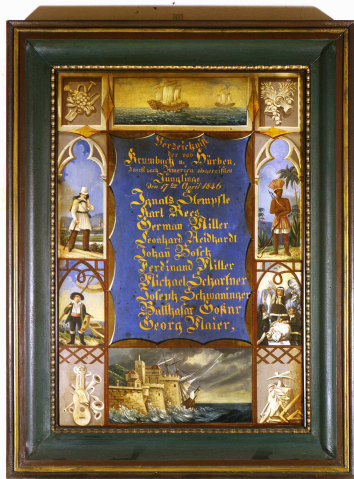 Verzeichniß
der von
Krumbach u. Hürben,
nach Amerika abgereißten
Jünglinge
den 17ten April 1846
Ignatz Stempfle
Hart Rees
German Miller
Leonhard Neidhardt
Johan Bosch
Ferdinand Miller
Michael Scharfner
Joseph Schwaninger
Balthasar
Georg Maier,